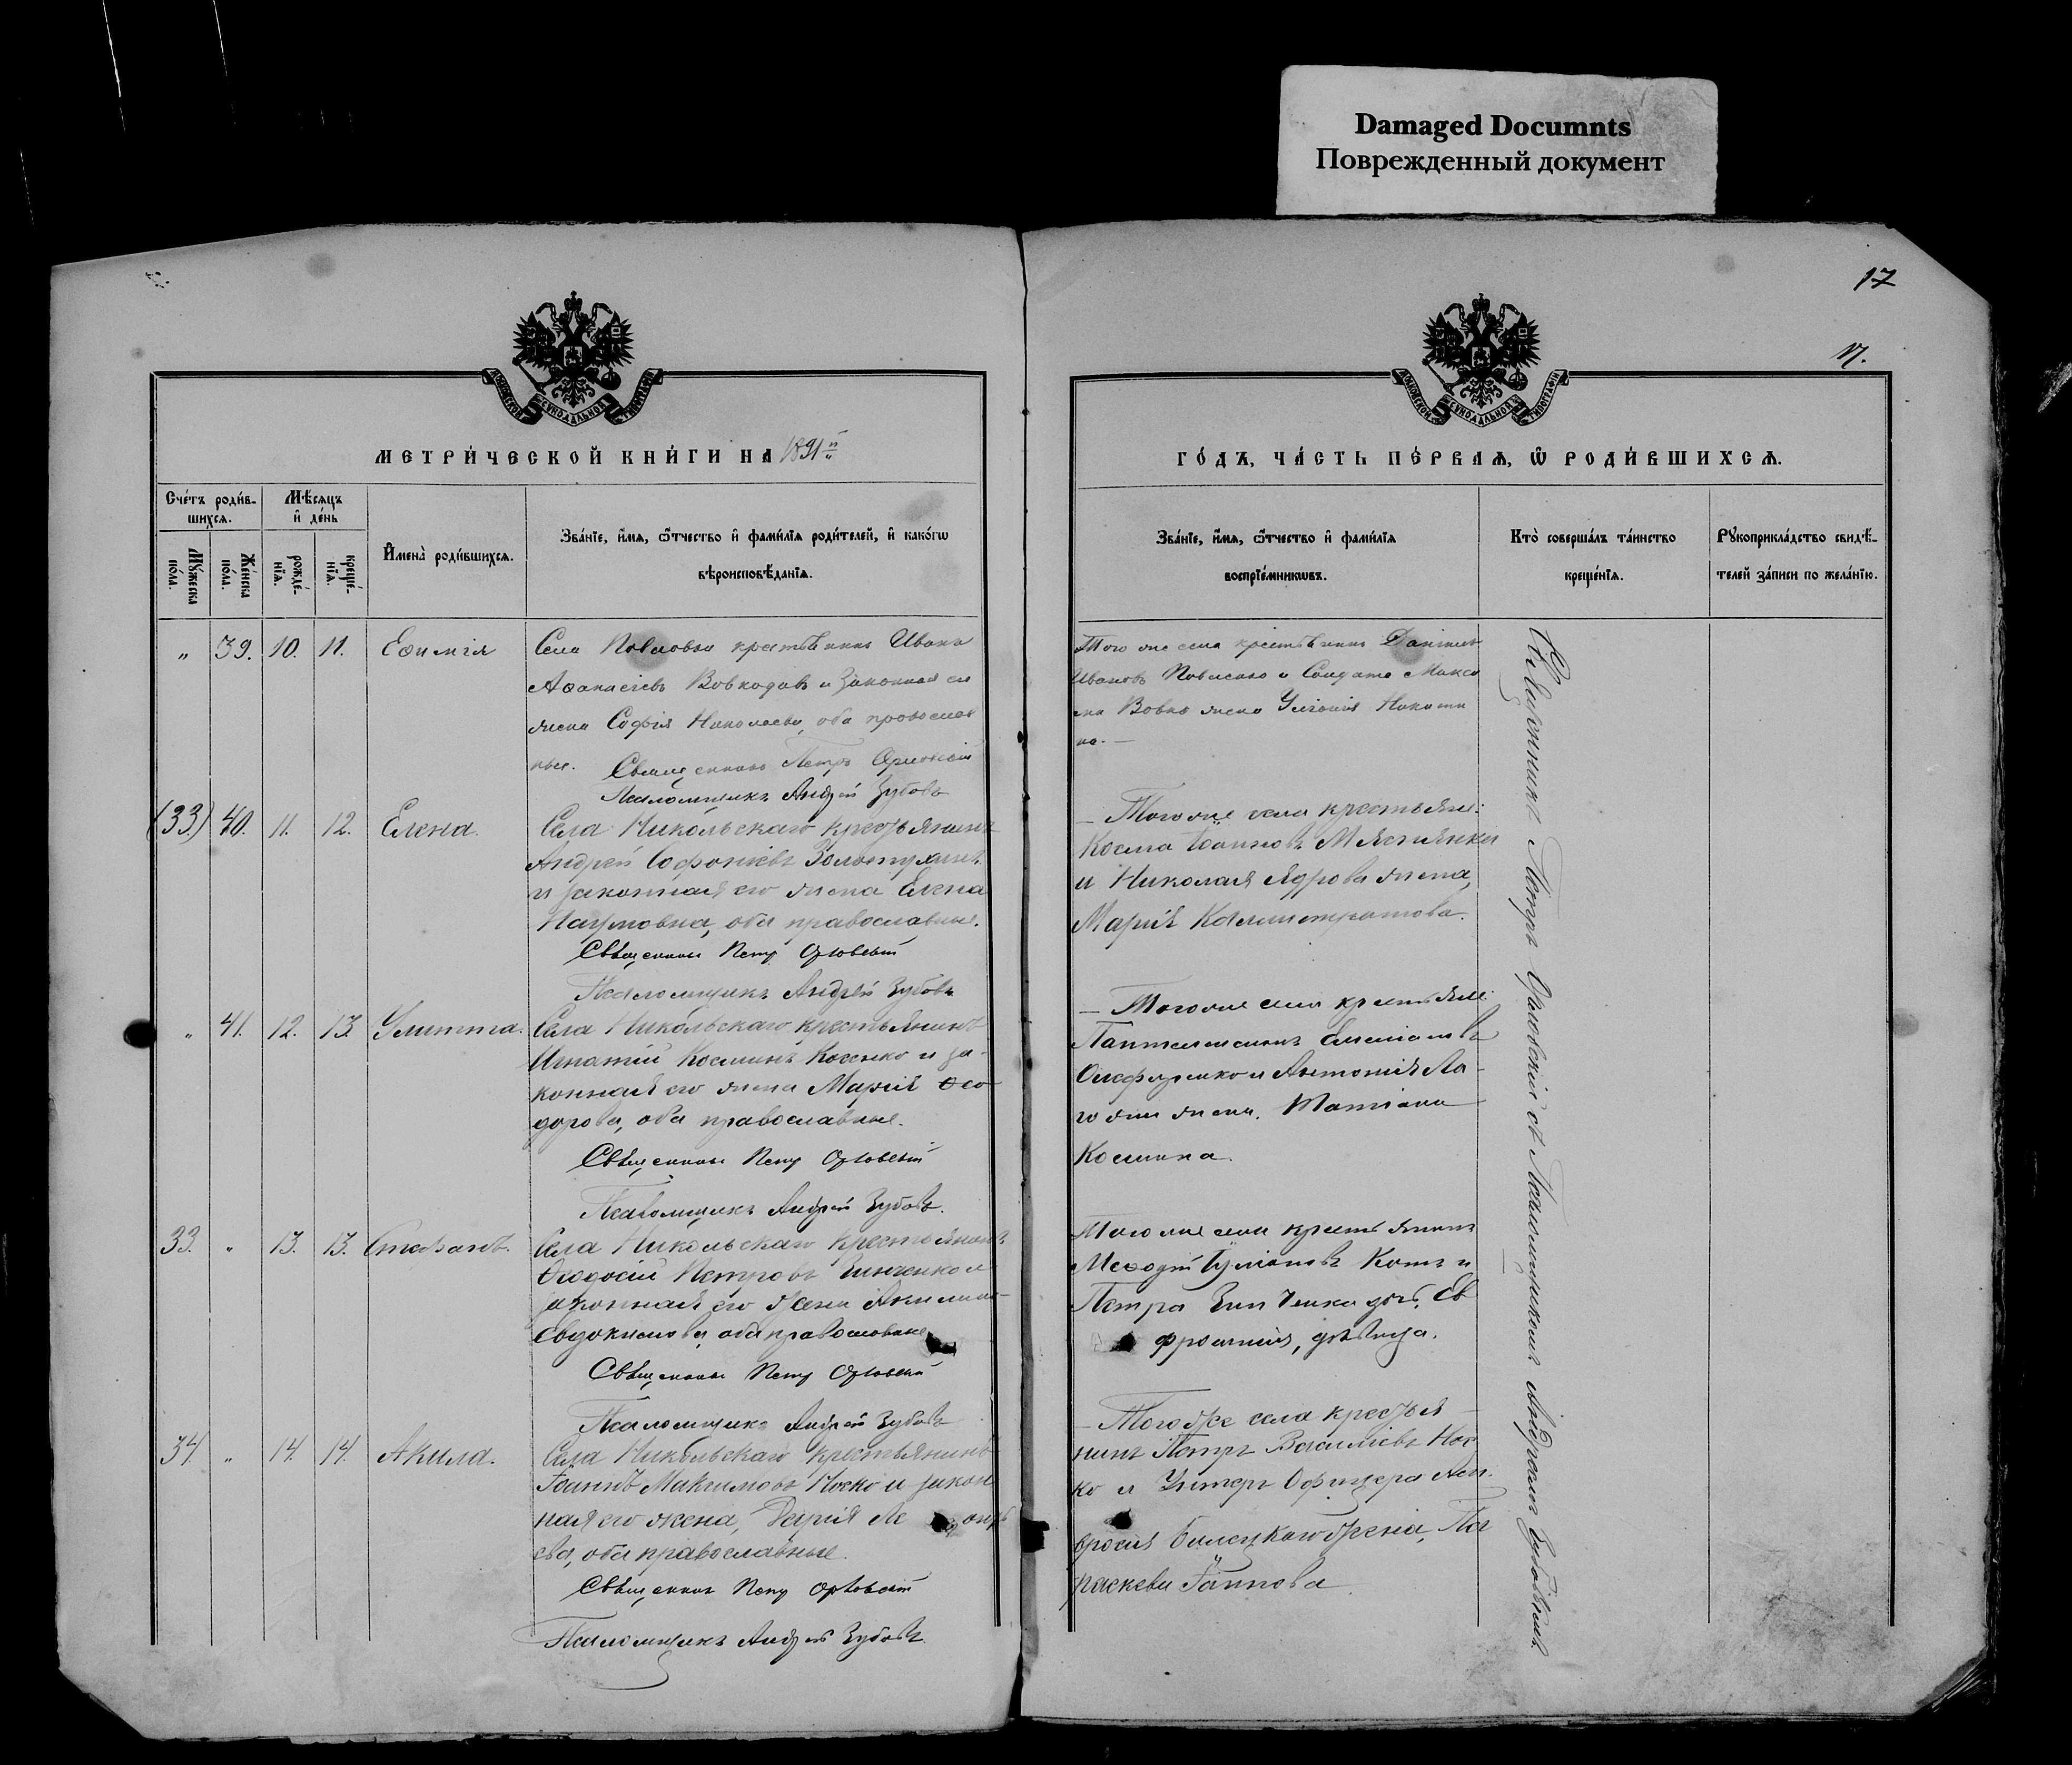 Damaged Documnts
Поврежденный документ
17
17.
МЕТРИ́ЧЕСКОЙ КНИ́ГИ НА 1891й
ГО́ДЪ, ЧА́СТЬ ПЕ́РВАѦ, Ѡ РОДИ́ВШИХСѦ.
Сче́тъ роди́в-
шихсѧ.
Мѣ́сѧцъ
и де́нь
Мꙋ́жеска
по́ла.
Же́нска
по́ла.
рожде́-
нїѧ.
креще́-
нїѧ.
Имена̀ роди́вшихсѧ.
Зва́нїе, и́мѧ, ѻ́тчество и фами́лїѧ роди́телей, и како́гѡ
вѣроисповѣ́данїѧ.
Зва́нїе, и́мѧ, ѻ́тчество и фами́лїѧ
воспрїе́мникѡвъ.
Кто̀ соверша́лъ та́инство
креще́нїѧ.
Рꙋкоприкла́дство свидѣ́-
телей за́писи по жела́нїю.
" 39. 10. 11. Еѳимія
Села крестьянинъ Иванъ
Аѳанасіевъ Вовкодавъ и законная его
жена Софія Николаева, оба православ
ные. Священникъ Петръ Орловскій
Псаломщикъ Андрей Зубовъ
Того же села крестьянинъ Даніилъ
Ивановъ и Солдата Макси
ма Вовка жена Никити
на. —
(33.) 40. 11. 12. Елена.
Села Никольскаго крестьянинъ
Андрей Софоніевъ Золотухинъ
и законная его жена Елена
Наумовна, оба православные.
Священникъ Петръ Орловскій
Псаломщикъ Андрей Зубовъ
— Того же села крестьяне:
Косма Іоанновъ
и Николая Ядрова жена,
Марія Каллистратова.
" 41. 12. 13. Улитта.
Села Никольскаго крестьянинъ
Игнатій Косминъ и за-
конная его жена Марія Ѳео-
дорова, оба православные.
Священникъ Петръ Орловскій
Псаломщикъ Андрей Зубовъ.
— Того же села крестьяне
Пантелеимонъ
и Антонія Ла-
жена, Татіана
Космина.
33. " 13. 13. Стефанъ.
Села Никольскаго крестьянинъ
Ѳеодосій Петровъ Зинченко и
законная его жена Акилина
Евдокимова, оба православные
Священникъ Петръ Орловскій
Псаломщикъ Андрей Зубовъ
Того же села крестьянинъ
Меѳодій Іуліановъ Котъ и
Петра Зинченка дочь, Ев
фросинія, дѣвица.
34 " 14. 14. Акила.
Села Никольскаго крестьянинъ
Іоаннъ Максимовъ Носко и закон
ная его жена, Дарія
ева, оба православные.
Священникъ Петръ Орловскій
Псаломщикъ Андрей Зубовъ.
— Того же села крестья-
нинъ Петръ Василіевъ Нос
ко и Унтеръ Офицера Ам-
вросія Билецкаго жена, Па
раскева Іоаннова.
Священникъ Петръ Орловскій съ Псаломщикомъ Андреемъ Зубовымъ.